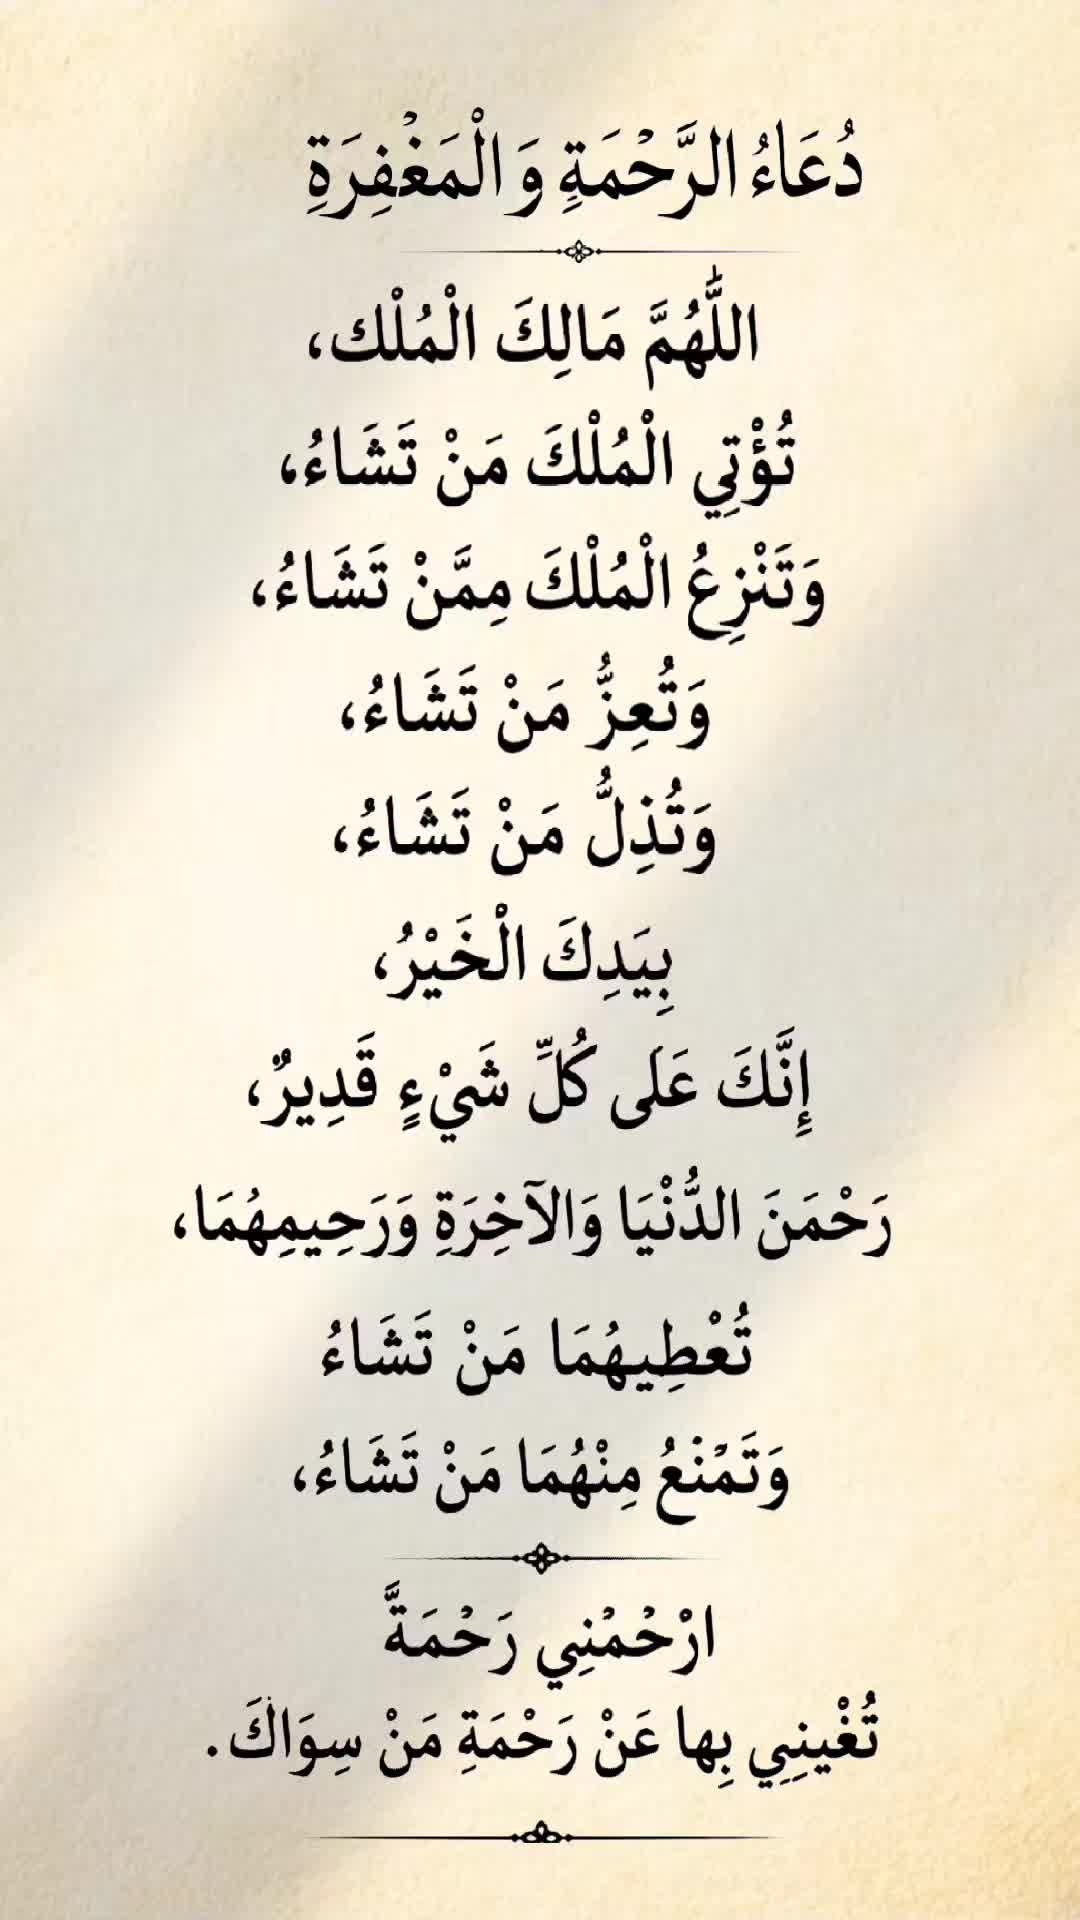 دُعَاءُ الرَّحْمَةِ وَ الْمَغْفِرَةِ
اللَّهُمَّ مَالِكَ الْمُلْك،
تُؤْتِي الْمُلْكَ مَنْ تَشَاءُ،
وَتَنْزِعُ الْمُلْكَ مِمَّنْ تَشَاءُ،
وَتُعِزُّ مَنْ تَشَاءُ،
وَتُذِلُّ مَنْ تَشَاءُ،
بِيَدِكَ الْخَيْرُ،
إِنَّكَ عَلَى كُلِّ شَيْءٍ قَدِيرٌ،
رَحْمَنَ الدُّنْيَا وَالآخِرَةِ وَرَحِيمِهُمَا،
تُعْطِيهُمَا مَنْ تَشَاءُ
وَتَمْنَعُ مِنْهُمَا مَنْ تَشَاءُ،
ارْحُمْنِي رَحُمَةًّ
تُغْينِنِي بِها عَنْ رَحْمَةِ مَنْ سِوَاكَ.